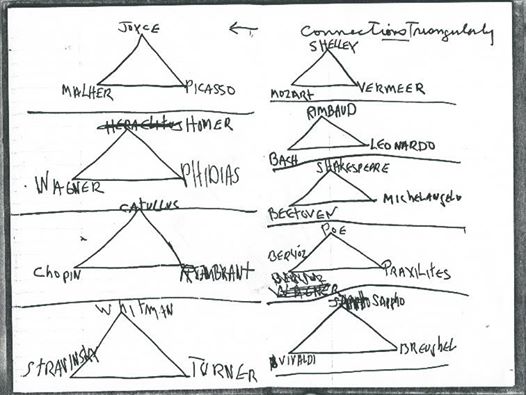 JOYCE
MALHER PICASSO
HERAClitus HOMER
WAGNER PHIDIAS
CATULLUS
Chopin REMBRANT
WHITMAN
STRAVINSKY TURNER
← Connections Triangularly
SHELLEY
MOZART VERMEER
RIMBAUD
BACH LEONARDO
SHAKESPEARE
BEETOVEN MichelAngelo
POE
BERLIOZ PRAXILITES
WAGNER
SAPPHO
VIVALDI BREUGHEL